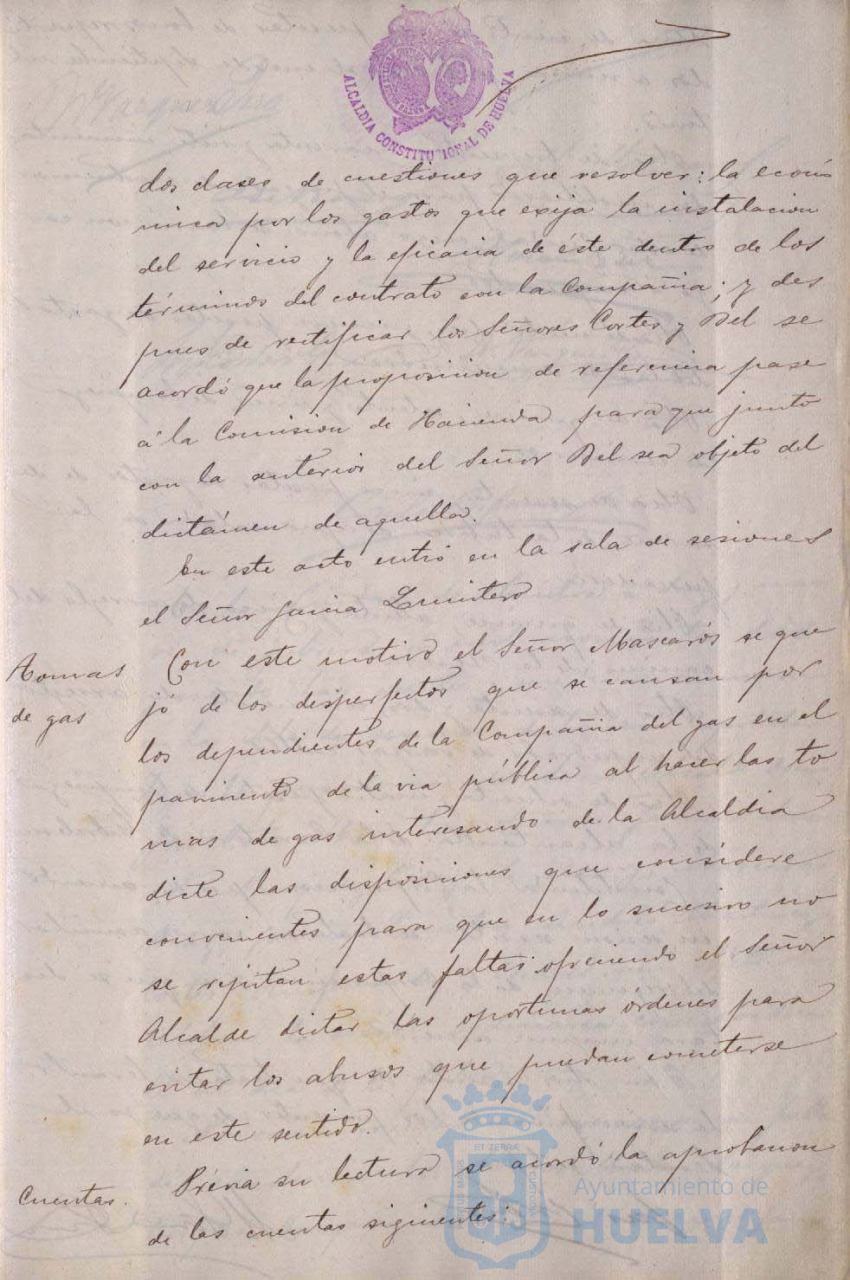 ALCALDIA CONSTITUCIONAL DE HUELVA
dos clases de cuestiones que resolver: la econó
mica por los gastos que exija la instalacion
del servicio y la eficacia de éste dentro de los
términos del contrato con la Compañia; y des
pues de rectificar los Señores Cortes y Bel se
acordó que la proposicion de referencia pase
á la Comision de Hacienda para que junto
con la anterior del Señor Bel sea objeto del
dictámen de aquella.
En este acto entró en la sala de sesiones
el Señor Garcia Quintero
Tomas
de gas
Con este motivo el Señor Mascarós se que
jó de los desperfectos que se causan por
los dependientes de la Compañia del gas en el
pavimento de la via pública al hacer las to
mas de gas interesando de la Alcaldia
dicte las disposiciones que considere
convenientes para que en lo sucesivo no
se repitan estas faltas: ofreciendo el Señor
Alcalde dictar las oportunas órdenes para
evitar los abusos que puedan cometerse
en este sentido.
Cuentas.
Prévia su lectura se acordó la aprobacion
de las cuentas siguientes:
Ayuntamiento de
HUELVA